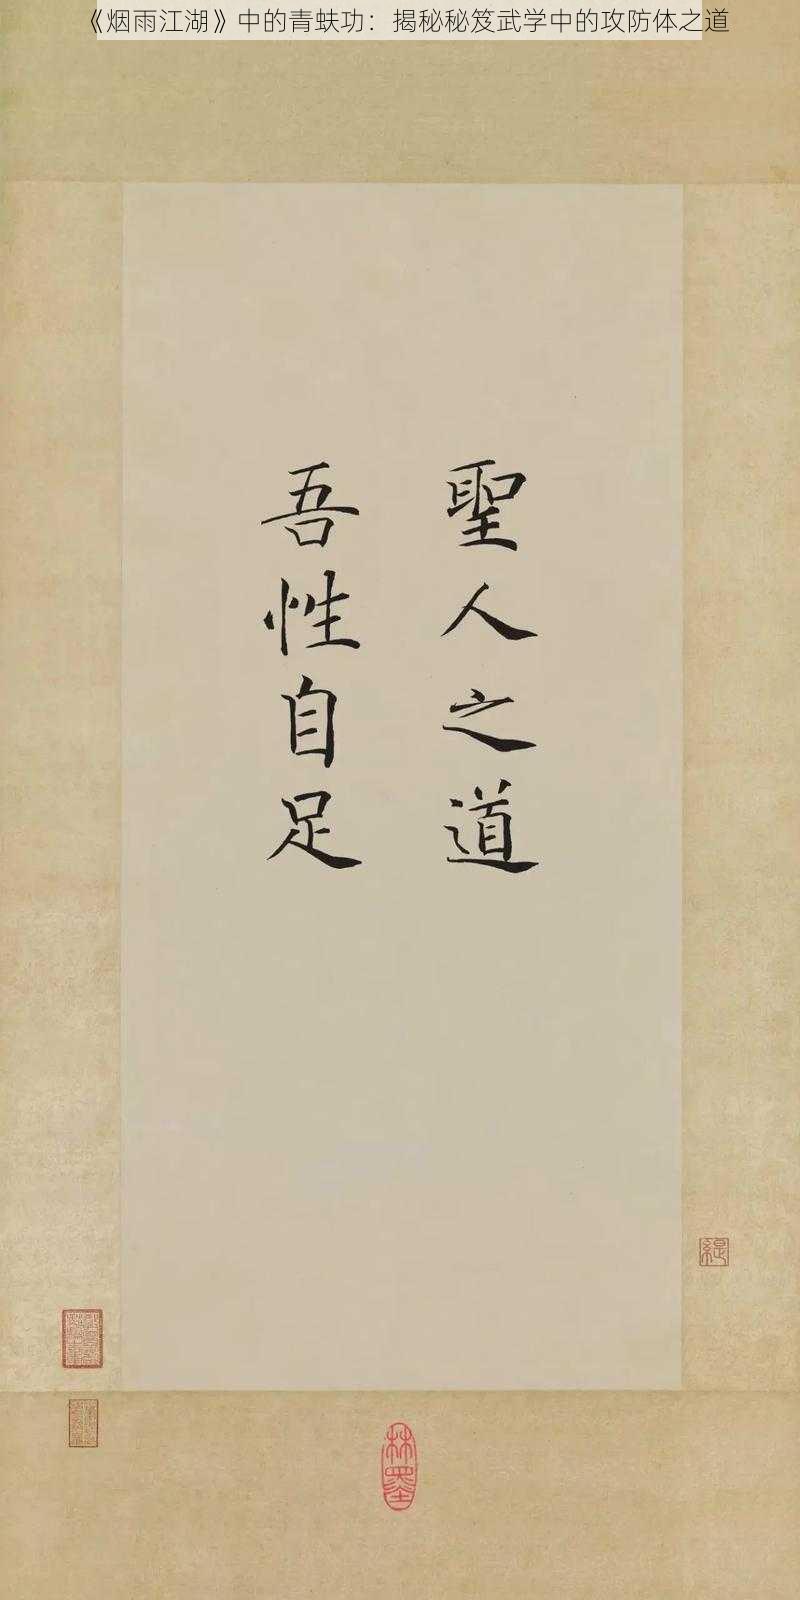 《烟雨江湖》中的青蚨功：揭秘秘笈武学中的攻防体之道
聖人之道
吾性自足